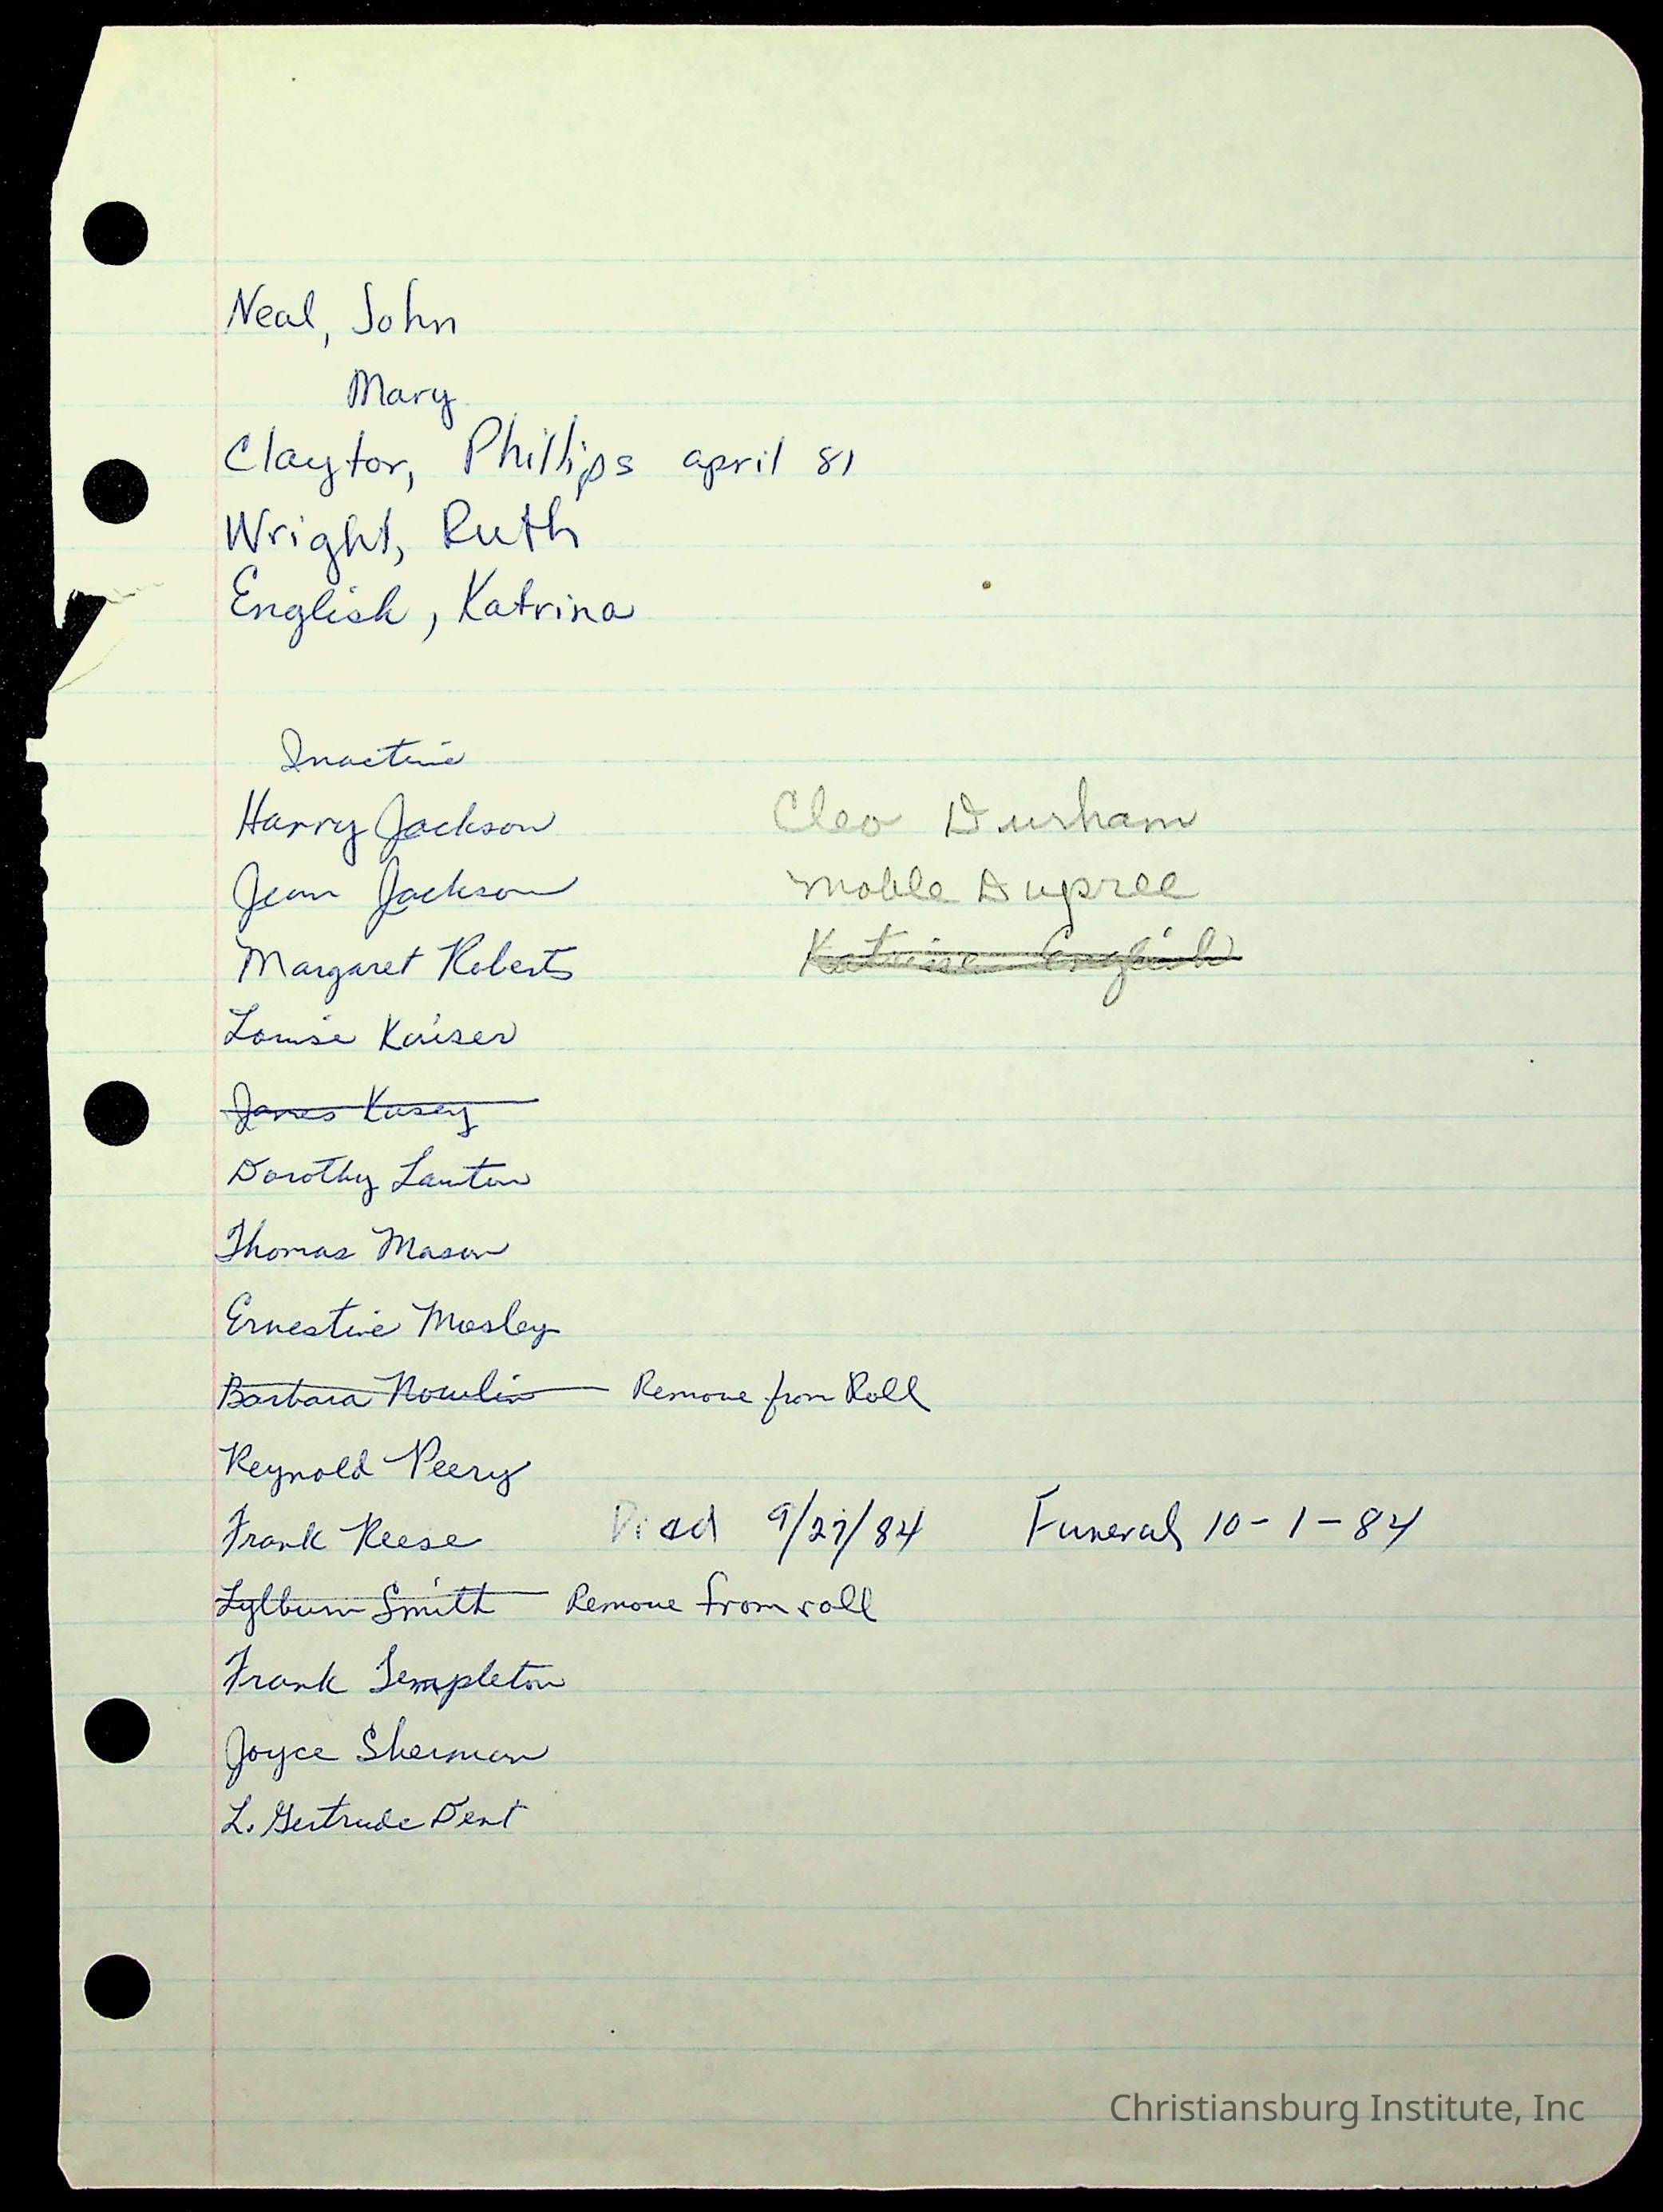 Neal, John
Mary
Claytor, Phillips april 81
Wright, Ruth
English, Katrina
Inactive
Harry Jackson Cleo Durham
Jean Jackson Mable Dupree
Margaret Roberts Katrina English
Louise Kaiser
James Kasey
Dorothy Lawton
Thomas Mason
Ernestine Mosley
Barbara Nowlin Remove from Roll
Reynold Peery
Frank Reese Died 9/27/84 Funeral 10-1-84
Lylburn Smith Remove from roll
Frank Templeton
Joyce Sherman
L. Gertrude Dent
Christiansburg Institute, Inc